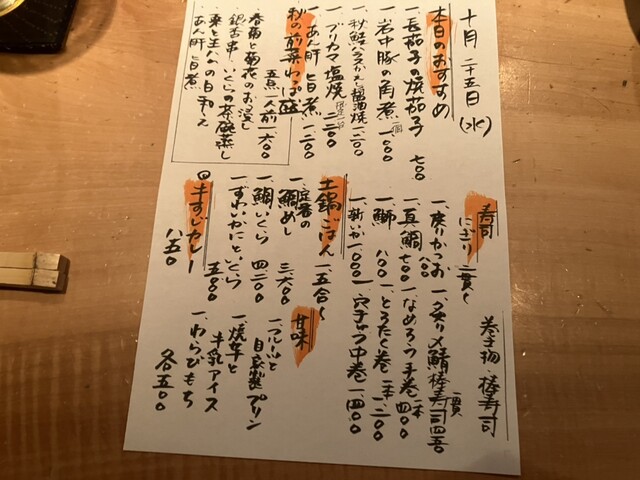 十月二十五日(水)
本日のおすすめ
一、長茄子の焼茄子 七〇〇
一、岩中豚の角煮 一個 一、〇〇〇
一、秋鮭ハラスかえし醤油焼 一、二〇〇
一、ブリカマ塩焼 二、二〇〇
一、あん肝旨煮 一、二〇〇
秋の前菜わっぱ盛
五点一人前一、六〇〇
春菊と菊花のお浸し
銀杏串 いくらの茶碗蒸し
あん肝旨煮
寿司
にぎり 二貫〜
一、戻りかつお 八〇〇
一、真鯛 七〇〇
一、鰤 八〇〇
一、新いか 一、〇〇〇
巻き物・棒寿司
一、炙り〆鯖棒寿司 一貫 四五〇
一、なめろう手巻 一本 四〇〇
一、とろたく巻 一本 一、二〇〇
一、穴子きゅう中巻 一、四〇〇
土鍋ごはん 一、五合〜
一、鯛めし 三、六〇〇
一、鯛いくら 四、二〇〇
一、ずわいかにといくら 五、〇〇〇
牛すじカレー
八五〇
甘味
一、フルーツと
自家製プリン
一、焼芋と
牛乳アイス
一、わらびもち
各五〇〇